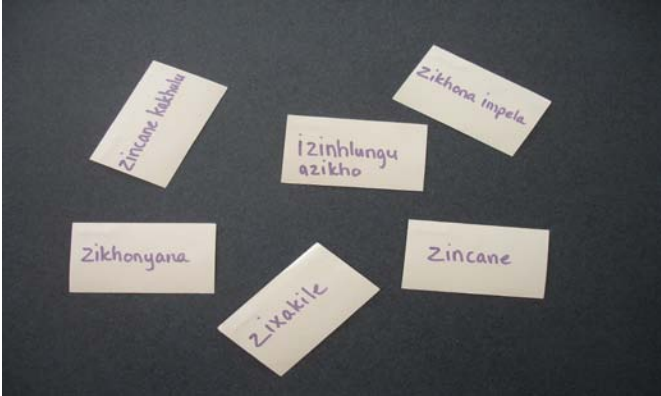 zincane kakhulu
zikhona impela
izinhlungu
azikho
zikhonyana
zincane
zixakile